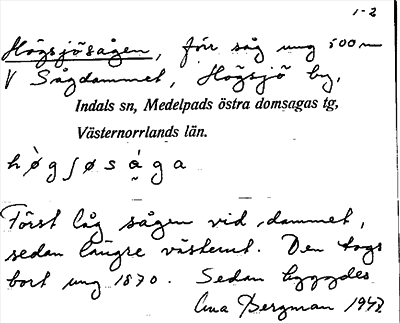 1-2
Högsjösågen, förr såg ung 500 m
V Sågdammet, Högsjö by,
Indals sn, Medelpads östra domsagas tg,
Västernorrlands län.
hø̀gʃøsága
Först låg sågen vid dammet,
sedan längre västerut. Den togs
bort ung 1870. Sedan byggdes
Bergman 1947